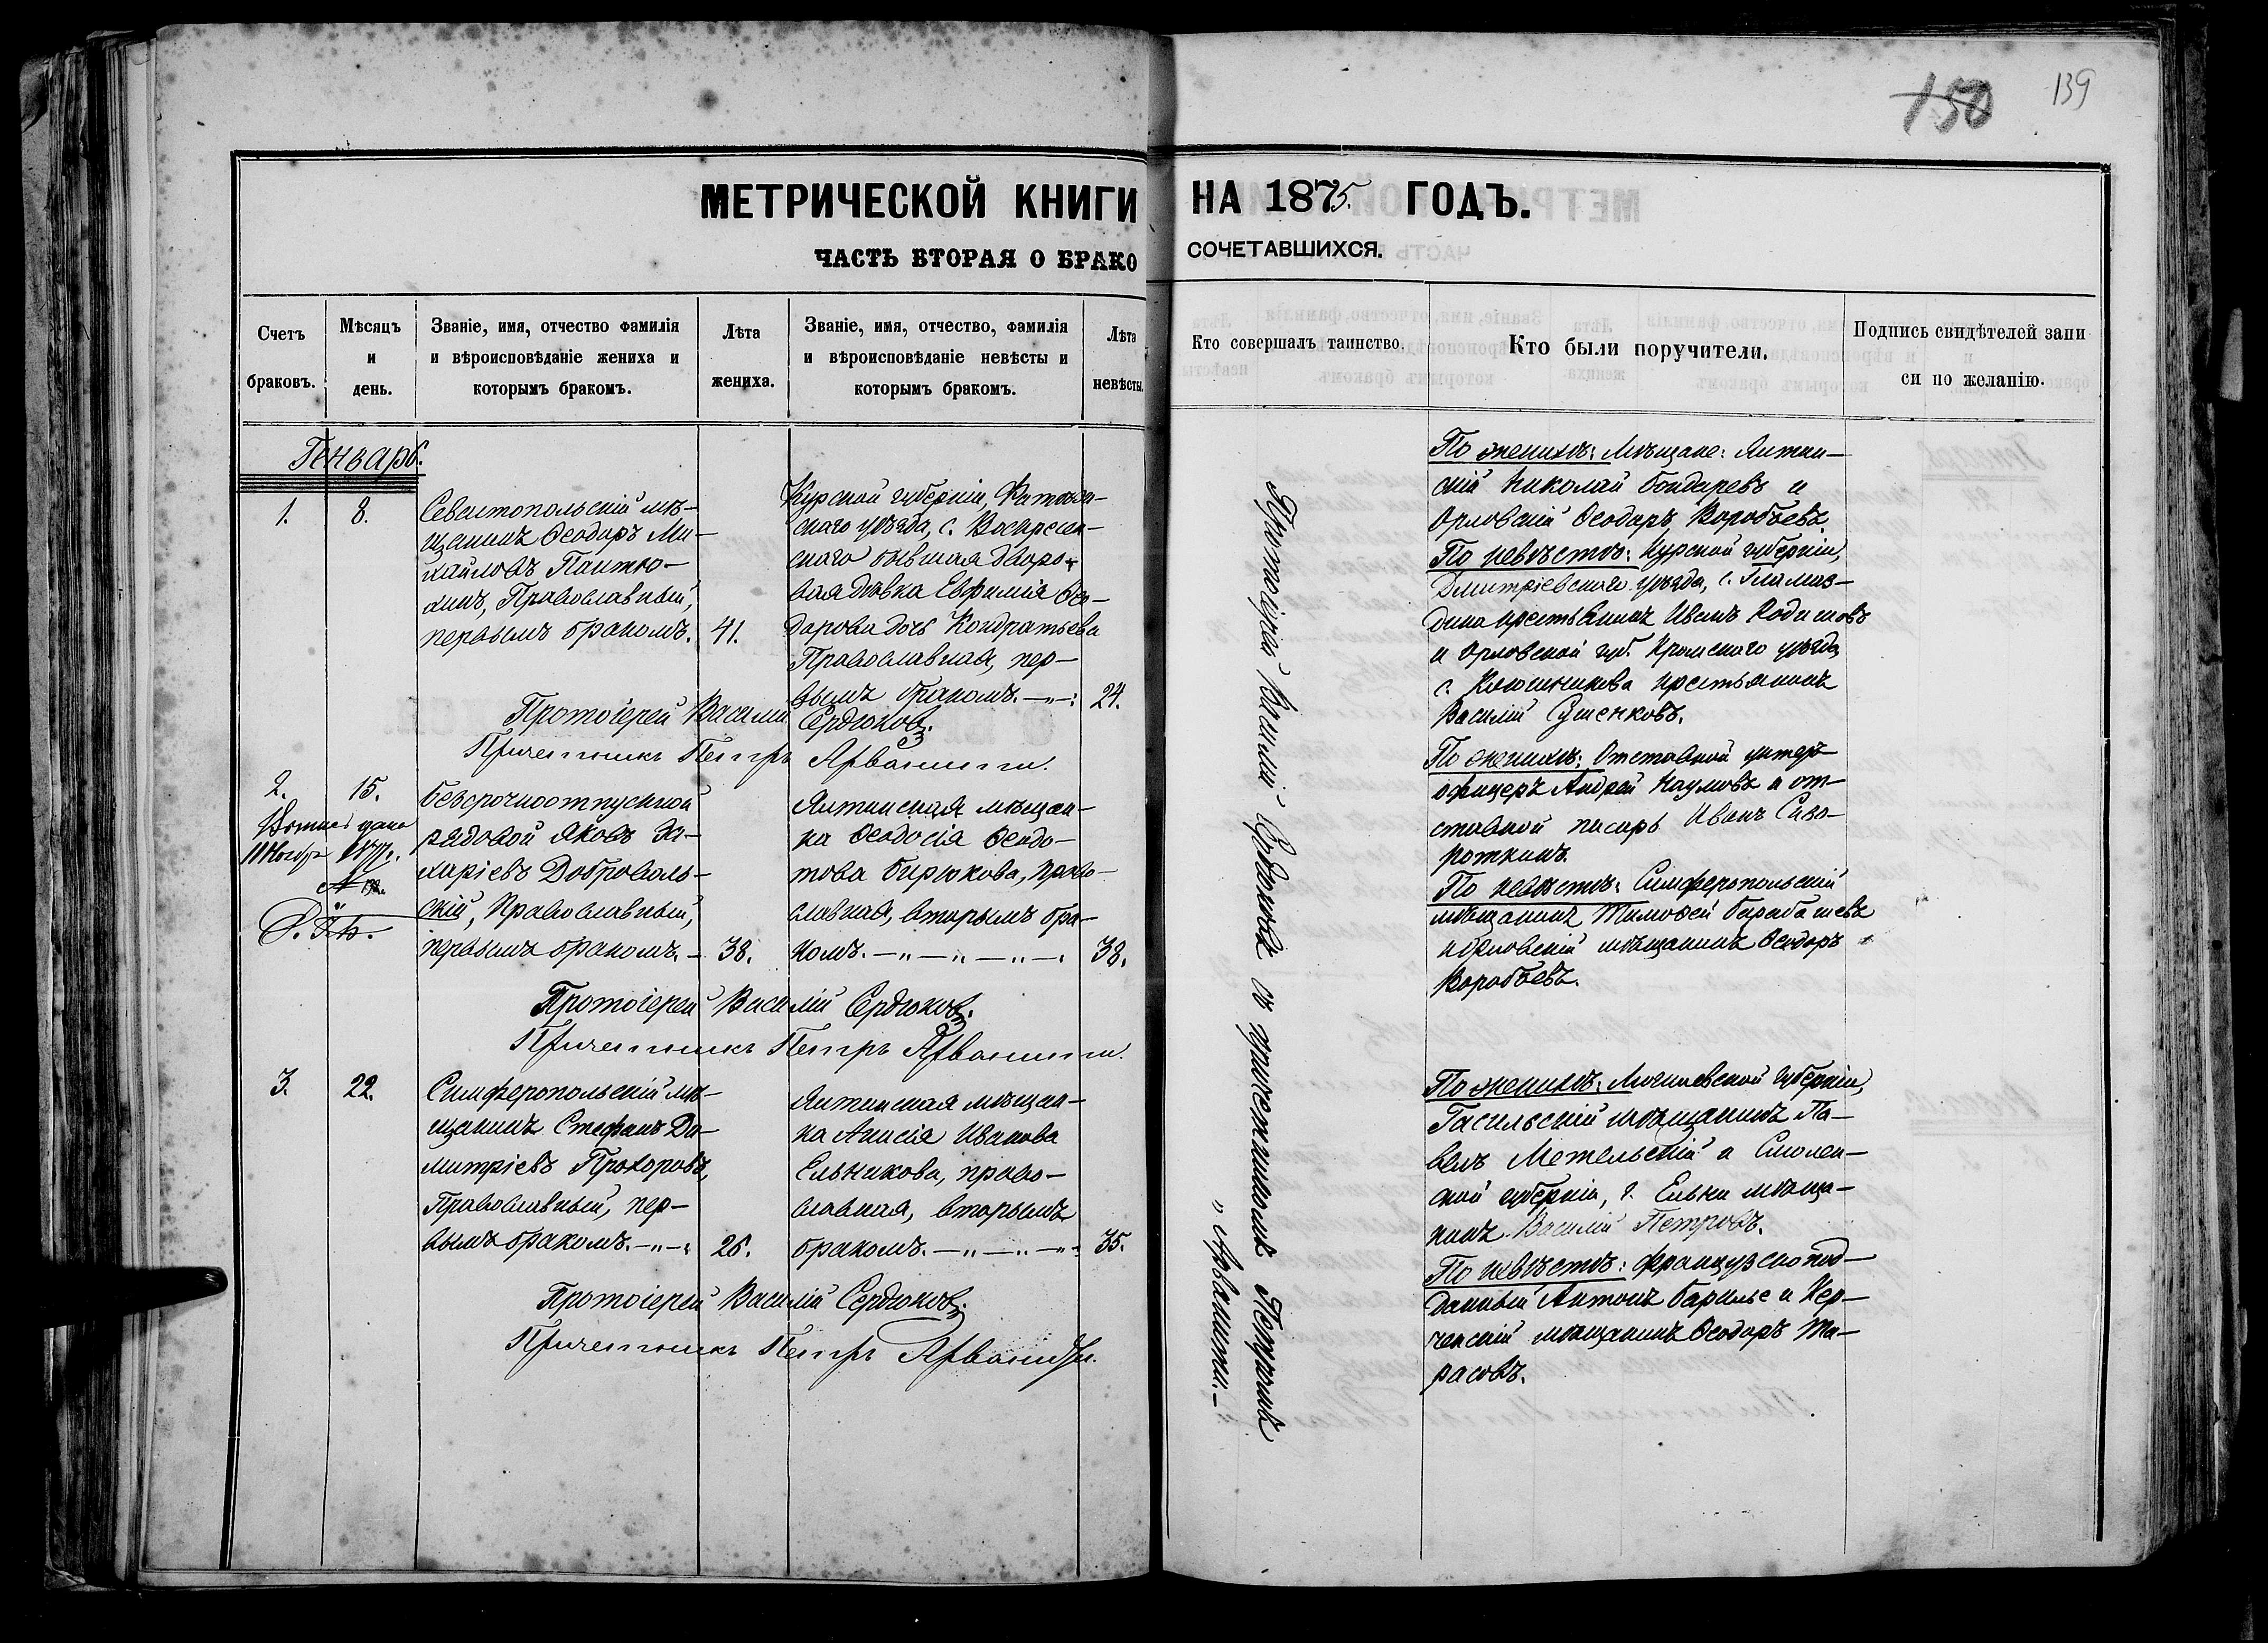 139
150
МЕТРИЧЕСКОЙ КНИГИ НА 1875. ГОДЪ.
ЧАСТЬ ВТОРАЯ О БРАКО СОЧЕТАВШИХСЯ.
Счетъ браковъ.
Мѣсяцъ и день.
Званіе, имя, отчество фамилія
и вѣроисповѣданіе жениха и
которымъ бракомъ.
Лѣта
жениха.
Званіе, имя, отчество, фамилія
и вѣроисповѣданіе невѣсты и
которымъ бракомъ.
Лѣта
невѣсты.
Кто совершалъ таинство.
Кто были поручители.
Подпись свидѣтелей запи
си по желанію.
Генварь.
1. 8.
Севастопольскій мѣ-
щанинъ Ѳеодоръ Ми-
хайловъ Пантю-
хинъ, Православный,
первымъ бракомъ. 41.
Курской губерніи, Фатеж-
скаго уѣзда, с. Воскресен-
скаго бывшая дворо-
вая дѣвка Евфимія Ѳео-
дорова дочь Кондратьева
Православная, пер-
вымъ бракомъ. 24.
Протоіерей Василій Сердюковъ.
Причетникъ Петръ Арванити.
По женихѣ: Мѣщане: Ялтин-
скій Николай Бондаревъ и
Орловскій Ѳеодоръ Воробьевъ.
По невѣстѣ: Курской губерніи,
Дмитріевскаго уѣзда, с. Гламаз-
дина крестьянинъ Иванъ Родіоновъ
и Орловской губ. Кромскаго уѣзда
с.
крестьянинъ
Василій Сушенковъ.
2. 15.
11 Ноября 1877г.
Безсрочноотпускной
рядовой Яковъ За-
харіевъ Доброволь-
скій, Православный,
первымъ бракомъ. 38.
Ялтинская мѣщан-
ка Ѳеодосія Ѳеодо-
това Бирюкова, Право-
славная, вторымъ бра-
комъ. 38.
Протоіерей Василій Сердюковъ.
Причетникъ Петръ Арванити.
По женихѣ: Отставной унтеръ-
офицеръ Андрей Наумовъ и от-
ставной писарь Иванъ Сиво-
роткинъ.
По невѣстѣ: Симферопольскій
мѣщанинъ Тимоѳей Барабашевъ
и Орловскій мѣщанинъ Ѳеодоръ
Воробьевъ.
3. 22.
Симферопольскій мѣ-
щанинъ Стефанъ Ди-
митріевъ Прохоровъ,
Православный, пер-
вымъ бракомъ. 26.
Ялтинская мѣщан-
ка Анисія Иванова
Ельникова, право-
славная, вторымъ
бракомъ. 35.
Протоіерей Василій Сердюковъ.
Причетникъ Петръ Арванити.
По женихѣ: Могилевской губерніи,
мѣщанинъ Па-
велъ Метельскій и Смолен-
ской губерніи, г. Ельни мѣща-
нинъ Василій Петровъ.
По невѣстѣ: французскоппод-
данный Антонъ Барилье и Кер-
ченскій мѣщанинъ Ѳеодоръ Та-
расовъ.
Протоіерей Василій Сердюковъ съ причетникомъ Петромъ
Арванити.